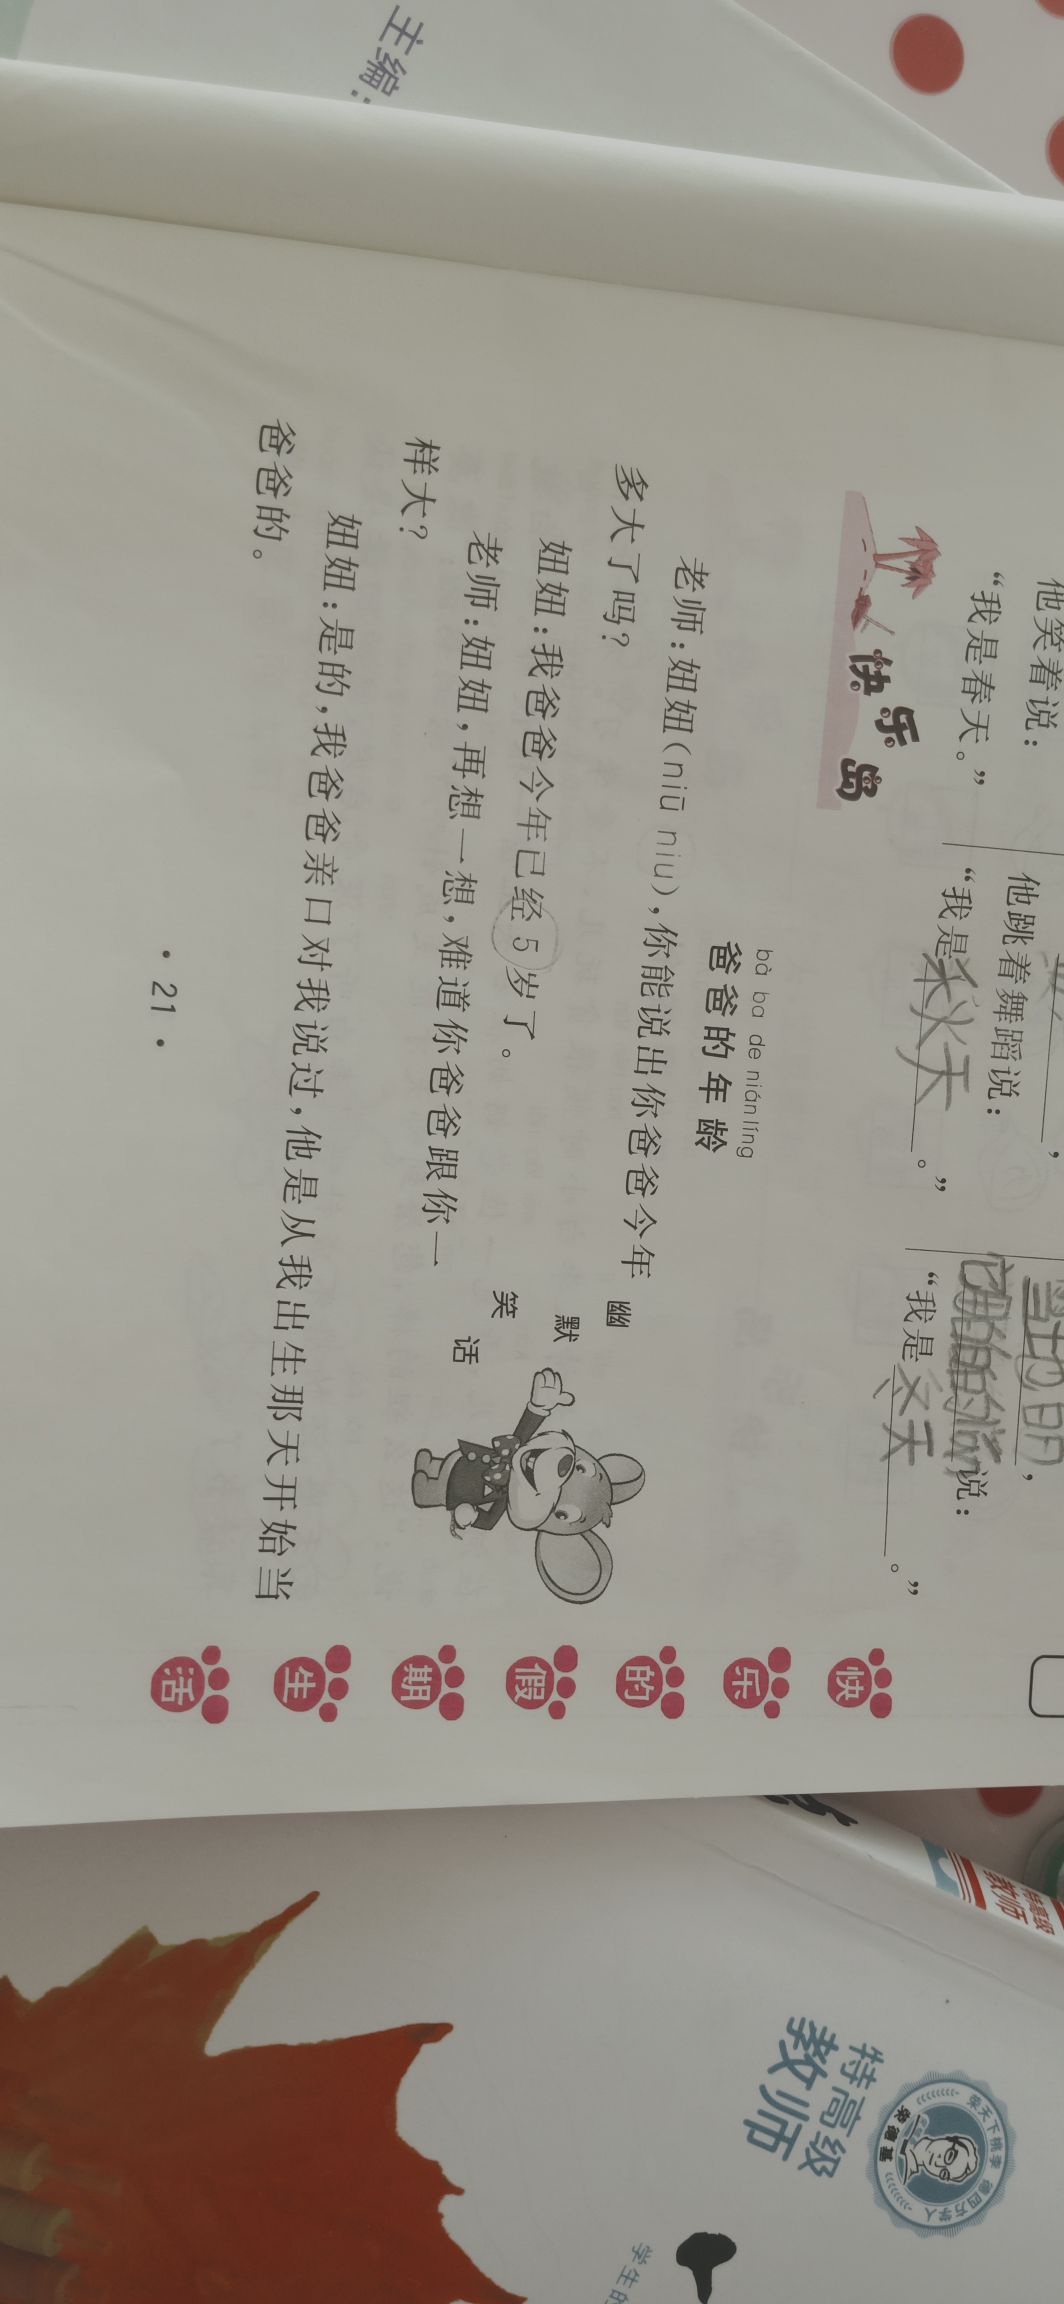 主编：
他笑着说：
“我是春天。”
他跳着舞蹈说：
“我是秋天。”
说：
“我是冬天。”
快乐岛
bà ba de nián líng
爸爸的年龄
老师：妞妞（niū niu），你能说出你爸爸今年
多大了吗？
妞妞：我爸爸今年已经5岁了。
老师：妞妞，再想一想，难道你爸爸跟你一
样大？
妞妞：是的，我爸爸亲口对我说过，他是从我出生那天开始当
爸爸的。
幽默笑话
·21·
快乐的假期生活
特高级
教师
特高级
教师
荣天下桃李 德四方学人
荣德基
学生的